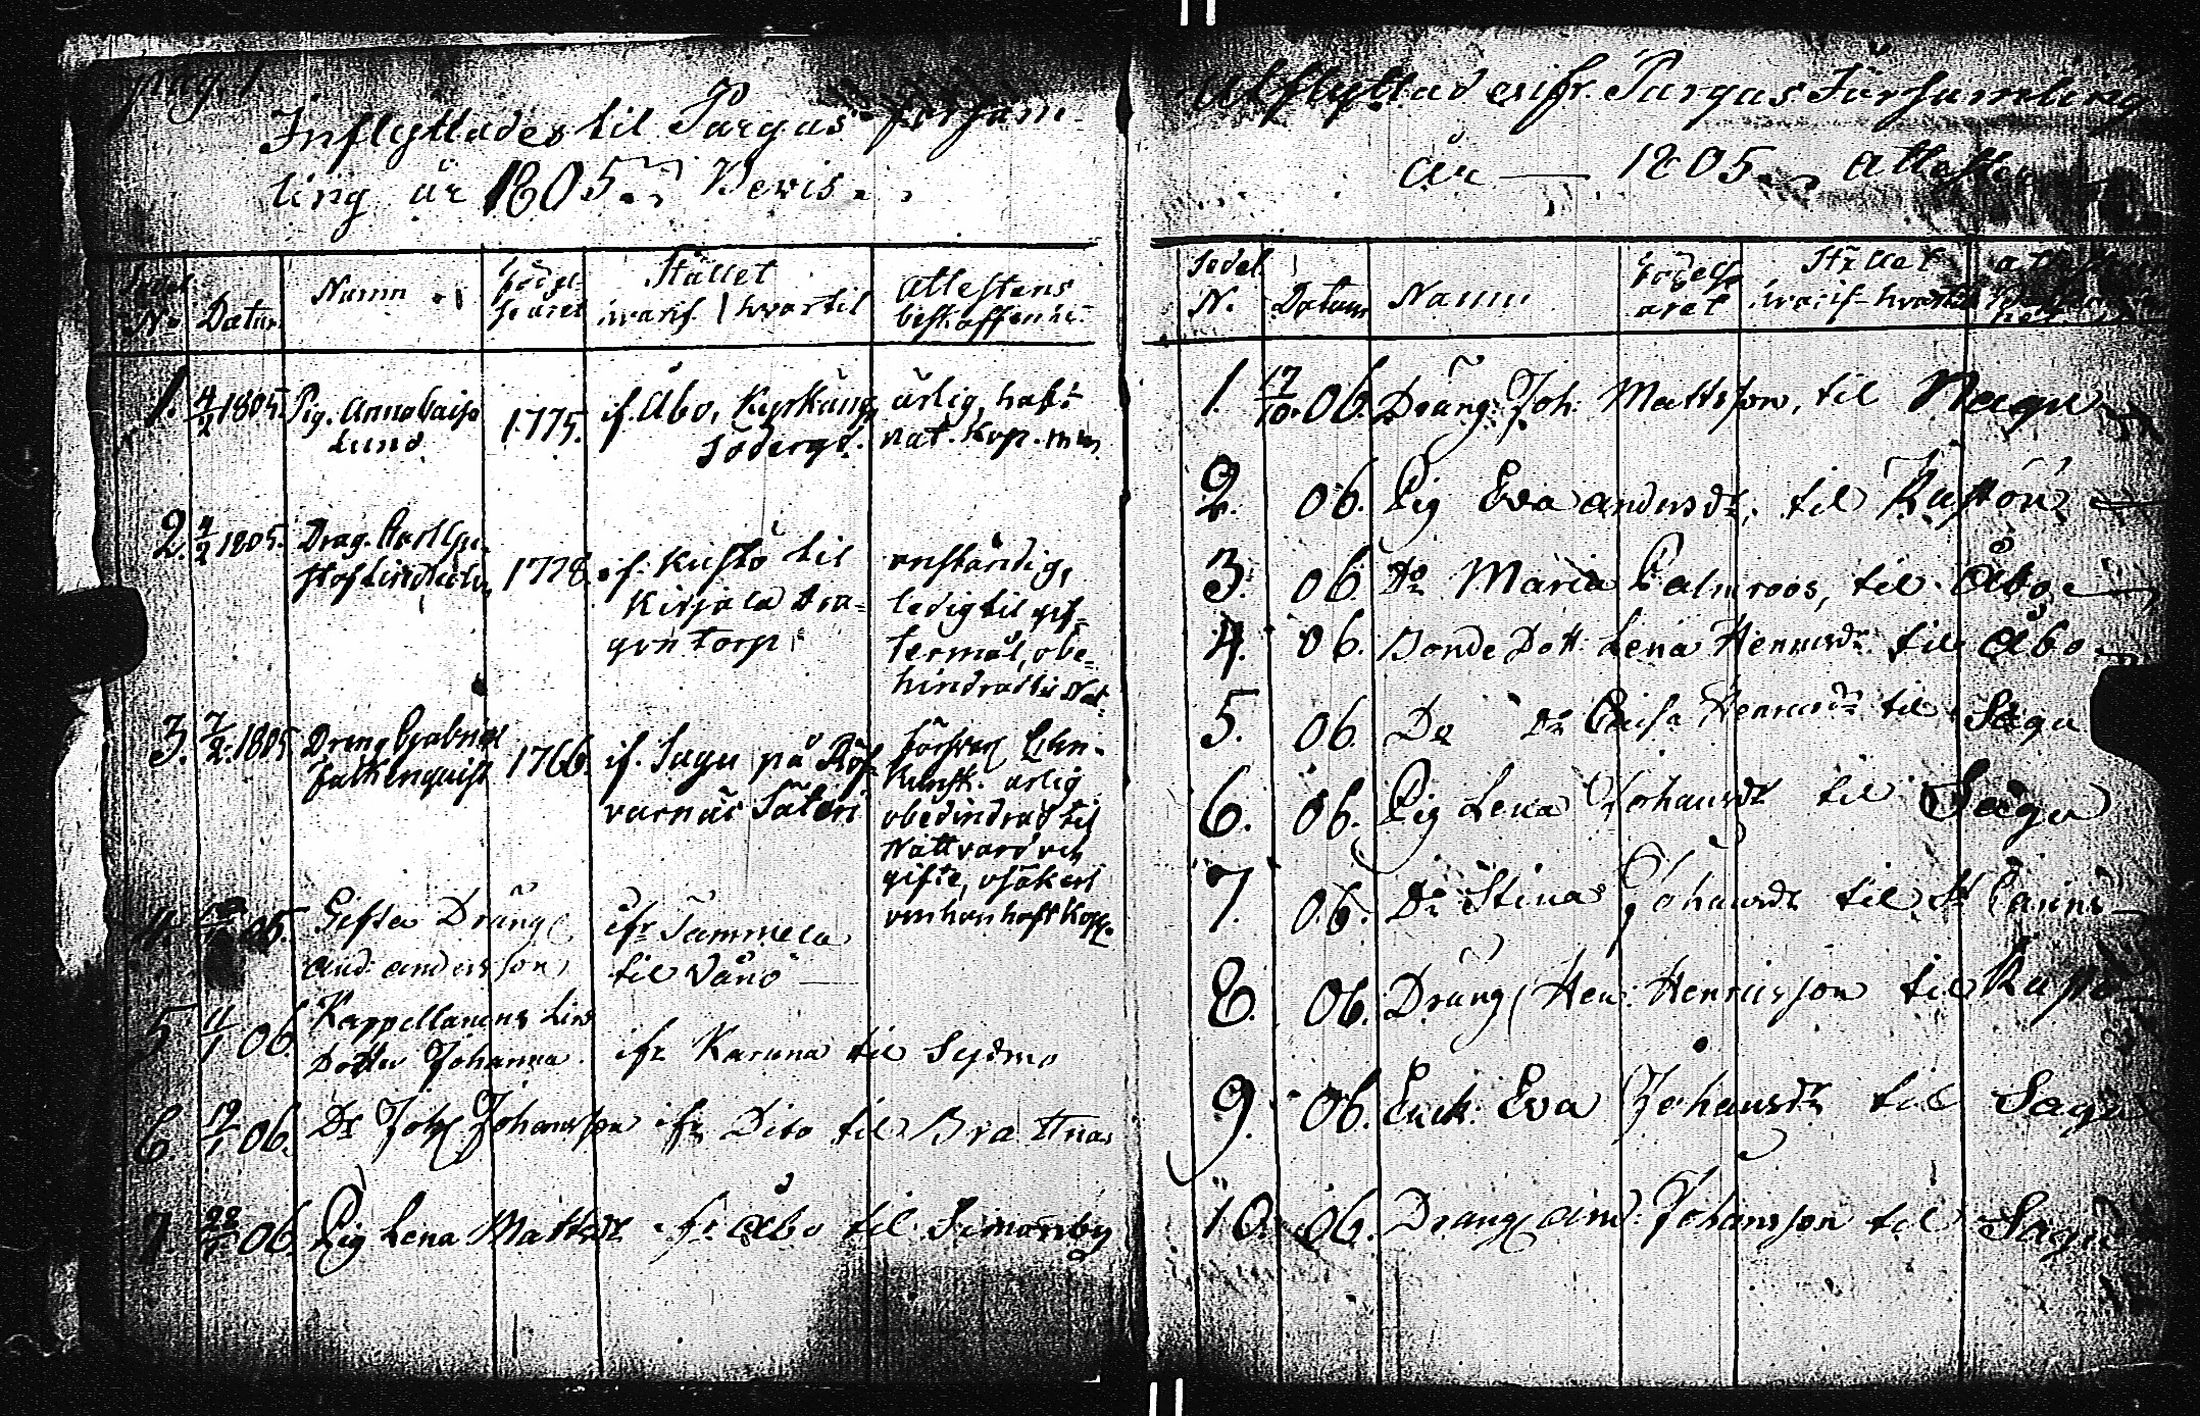 pag. 1.
Inflyttades til Pargas försam-
ling år 1805. Bevis.
Sedel
No
Datum
Namn
Födel-
seåret
Stället
hvarif. hvartil
Attestens
beskaffenhet
1. 4/2 1805. Pig. Anna Caisa
Lund
1775.
if. Åbo, Kyrkäng
Södergd.
ärlig, haft
nat. Kop.
2. 4/2 1805. Drag. Carl Gu-
stof Lindholm
1778.
if. Kustö til
Kirjala Dra-
gon torp
anständig,
ledig til gif-
termål, obe-
hindrad til Nat-
3. 7/2 1805 Dreng Gabriel
Falkenquist
1766.
if. Sagu på Röf-
varnäs Säteri
försvarl. Chri-
kunsk. ärlig
obehindrad til
Nattvard och
gifte, osäkert
om han haft Kopp.
4. 05. Gifta Dräng
And. Andersson
ifr Sammela
til Vånö
5 11/1 06. Kappellanens Lind
Dotter Johanna
ifr Karuna til Sydmo
6. 19/1 06. Dr Joh Johansson ifr Dito til Brattnäs
7. 22/1 06. Pig Lena Mattsdr ifr Åbo til Simonby
Utflyttad utifr. Pargas Församling
år 1805. Attester
Sedel
N.
Datum
Namn
Födelse
året
Stället
hvarif- hvartil
1. 17/10. 06. Dräng. Joh. Mattsson, til Nagu
2. 06. Pig Eva Andersdr, til Kustö
3. 06 Do Maria Palmroos, til Åbo
4. 06. Bonde Dott. Lena Henricsdr til Åbo
5. 06. Do Do Caisa Henricsdr til Sagu
6. 06. Pig Lena Johansdr til Sagu
7. 06. Do Stina Johansdr til St Carins
8. 06. Dräng Hen. Henricsson til Kustö
9. 06. Enck. Eva Johansdr til Sagu
10. 06. Dräng And. Johansson til Sagu